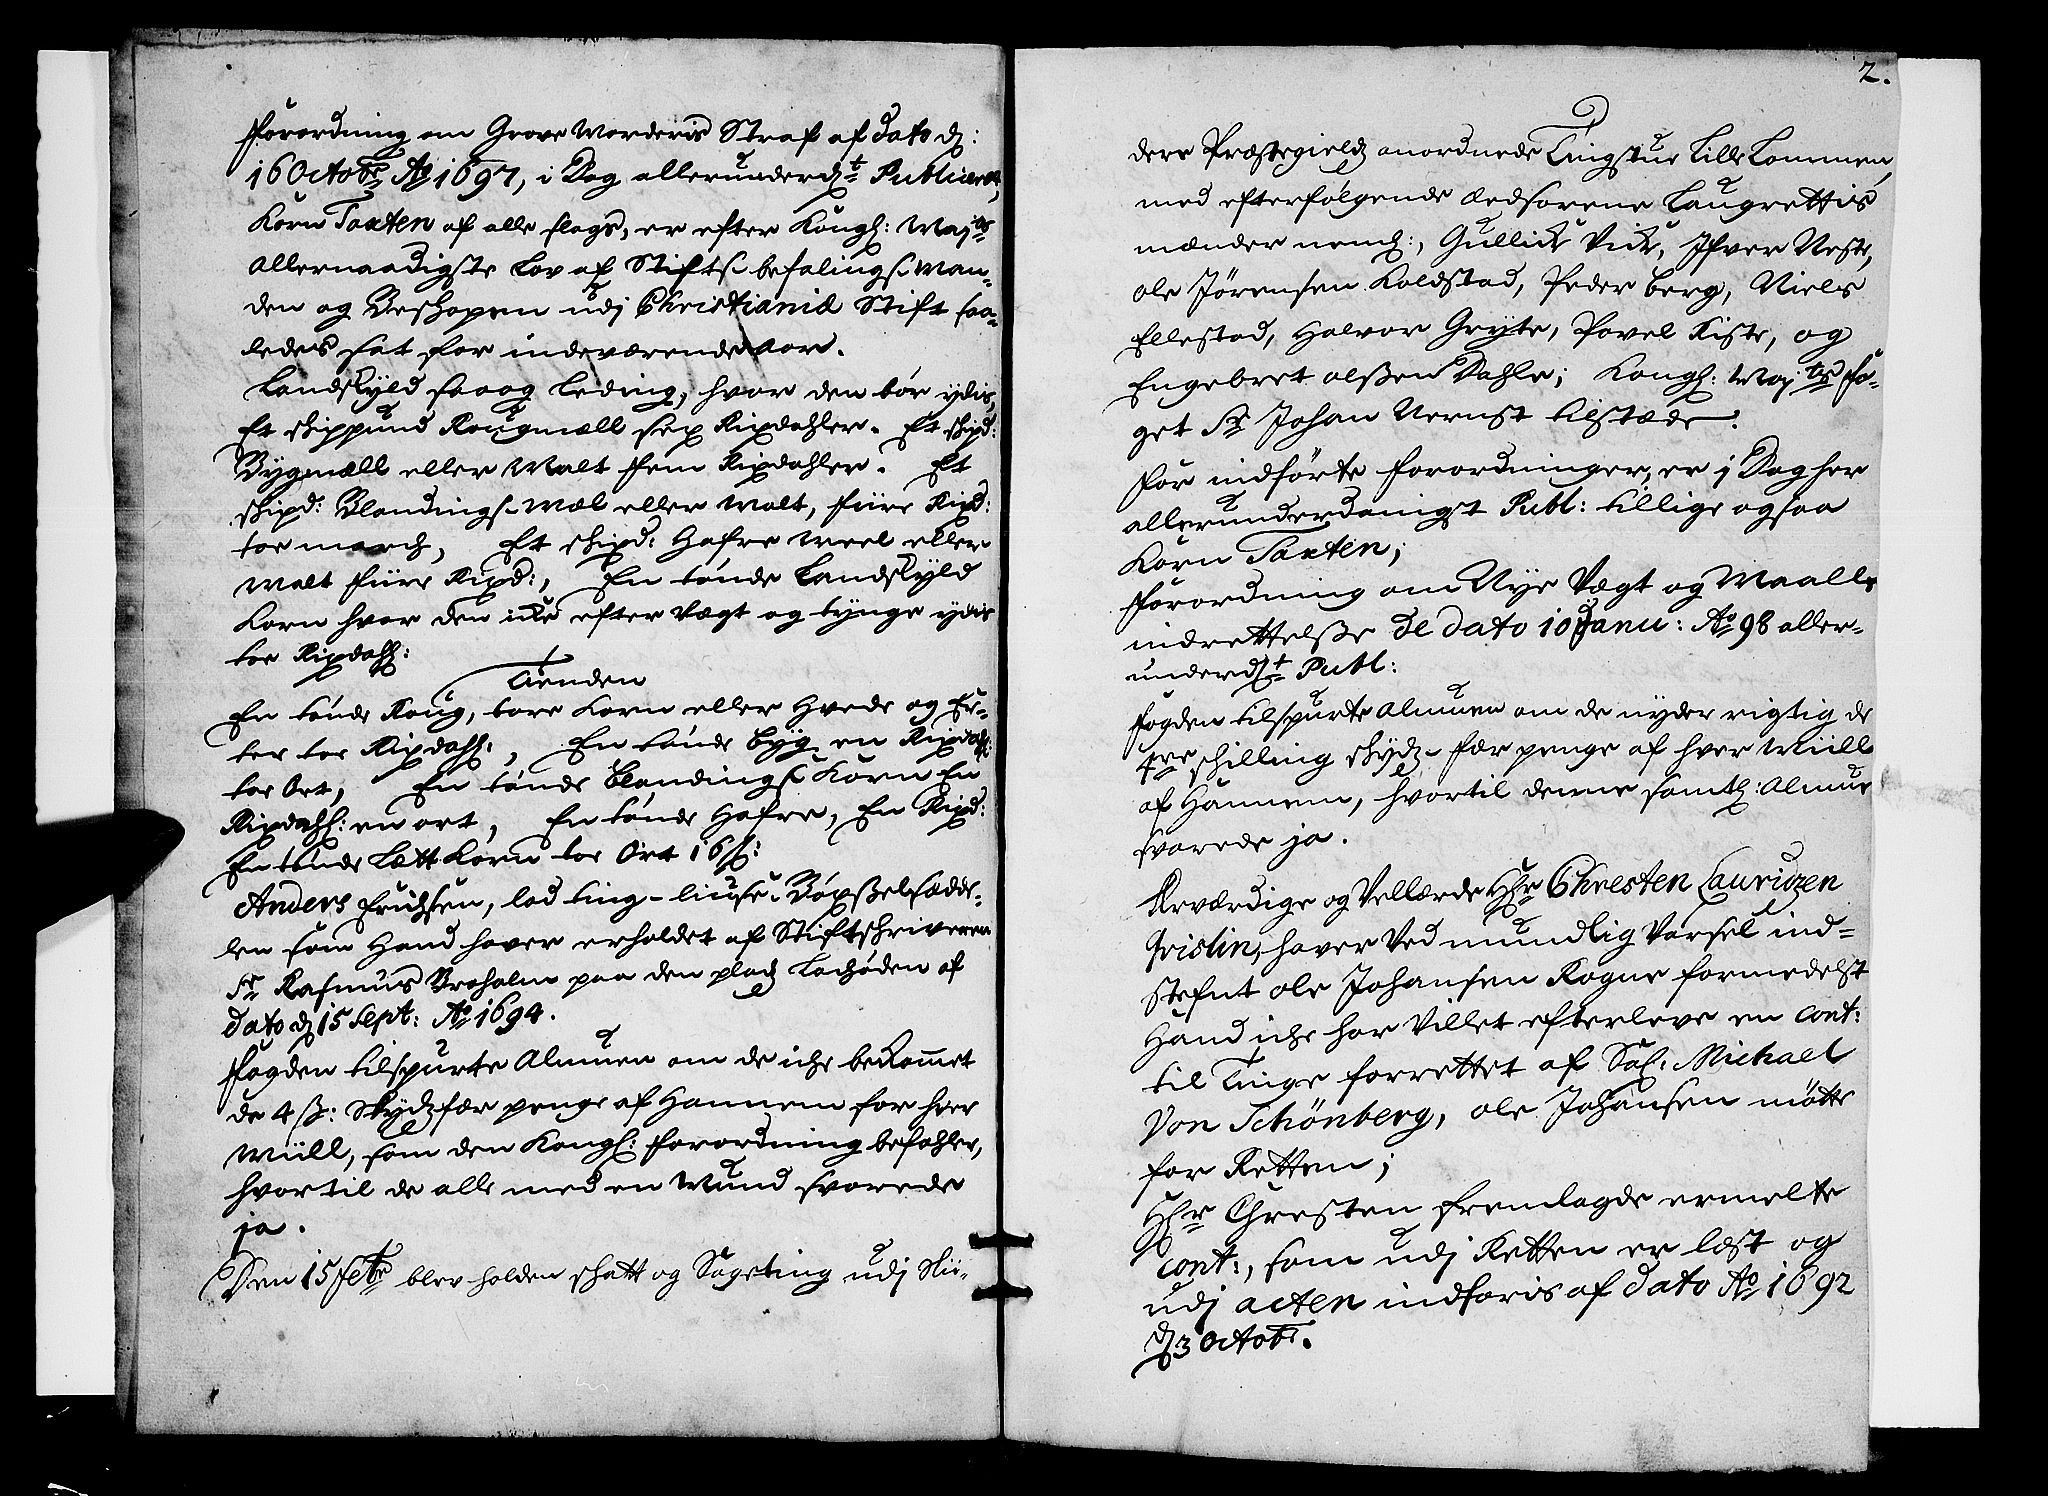 Forordning om Grove Morderis Straf af dato d:
16 Octobr Ao 1697, i Dag allerunderdt Publiceret,
Korn Taxten af alle slags, er efter Kongl: Maÿts
allernaadigste Lov af Stifts befalings Man-
den og Beshopen udj Christianiæ Stift saa-
ledes sat for indeværende Aar.
Landskyld saaog Leding, hvor den bør ydis,
Et skippund Rougmæll sex Rixdahler. Et skipd:
Bygmæll eller Malt fem Rixdahler. Et
skipd: Blandings Mæl eller Malt, fiire Rixd:
toe march, Et skipd: Hafre Meel eller
Malt fiire Rixd:, En tønde Landskyld
Korn hvor den icke efter Vægt og tynge ydis
toe Rixdahl:
Tienden
En tønde Roug, bare Korn eller Hvede og Er-
ter toe Rixdahl:, En tønde byg en Rixdahl:
toe Ort, En tønde blandings Korn En
Rixdahl: en ort, En tønde Hafre, En Rixd:
En tønde Lætt Korn toe Ort 16 s:
Anders Erichsen, lod ting-liuse Bøxßelsædde-
len som Hand haver erholdet af Stiftschriveren
Sr Rasmus Broholm paa den plads Lachøden af
dato d 15 Sept: Ao 1694.
Fogden tilspurte Almuen om de iche bekommet
de 4 s: Skydsfær penge af Hannem for hver
Miill, som den Kongl: forordning befahler,
hvortil de alle med en Mund svarede
ja.
Den 15 Febr blev holden skatt og Sageting udj Slii-
2.
dere Præstegields anordnede Tingstue Lille Lommen,
med efterfølgende Eedsorene Laugrettis
mænder neml:, Gullick Vick, Ifver Neste,
ole Jørensen Koldstad, Peder berg, Niels
Ellestad, Halvor Gryte, Povel Kiste, og
Engebret olßen Dahle; Kongl: Maj:ts fo-
get Sr Johan Nernst tilstæde.
For indførte forordninger, er j Dag her
allerunderdanigst Publ: tillige ogsaa
Korn Taxten;
Forordning om Nye Vægt og Maalls
indrettelße de dato 10 Janu: Ao 98 aller-
underdt Publ:
Fogden tilspurte Almuen om de nyder rigtig de
4re schilling skyds fær penge af hver Miill
af Hannem, hvortil denne samtl: Almue
svarede ja.
Kerværdige og Vellærde Hhr Christen Lauridzen
Qvislin, haver Ved mundlig Varsel ind-
stefnt ole Johansen Rogne formedelst
Hand iche har Villet efterleve en cont:
til Tinge forrettet af Sal: Michael
Von Schönberg, ole Johansen mötte
for Retten;
Hhr Chresten fremlagde ermelte
cont:, som udj Retten er læst og
udj acten indføris af dato Ao 1692
d 3 Octobr.